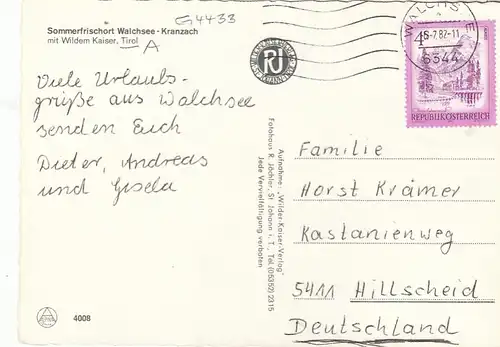 G4433
Sommerfrischort Walchsee - Kranzach
mit Wildem Kaiser, Tirol
A
Viele Urlaubs-
grüße aus Walchsee
senden Euch
Dieter, Andreas
und Gisela
4008
RJ
Aufnahme: „Wilder-Kaiser-Verlag"
Fotohaus R. Jöchler, St. Johann i. T., Tel. (05352) 2315
Jede Vervielfältigung verboten
WALCHSEE
-7.82-11
6344
REPUBLIK ÖSTERREICH
Familie
Horst Krämer
Kastanienweg
5411 Hillscheid
Deutschland